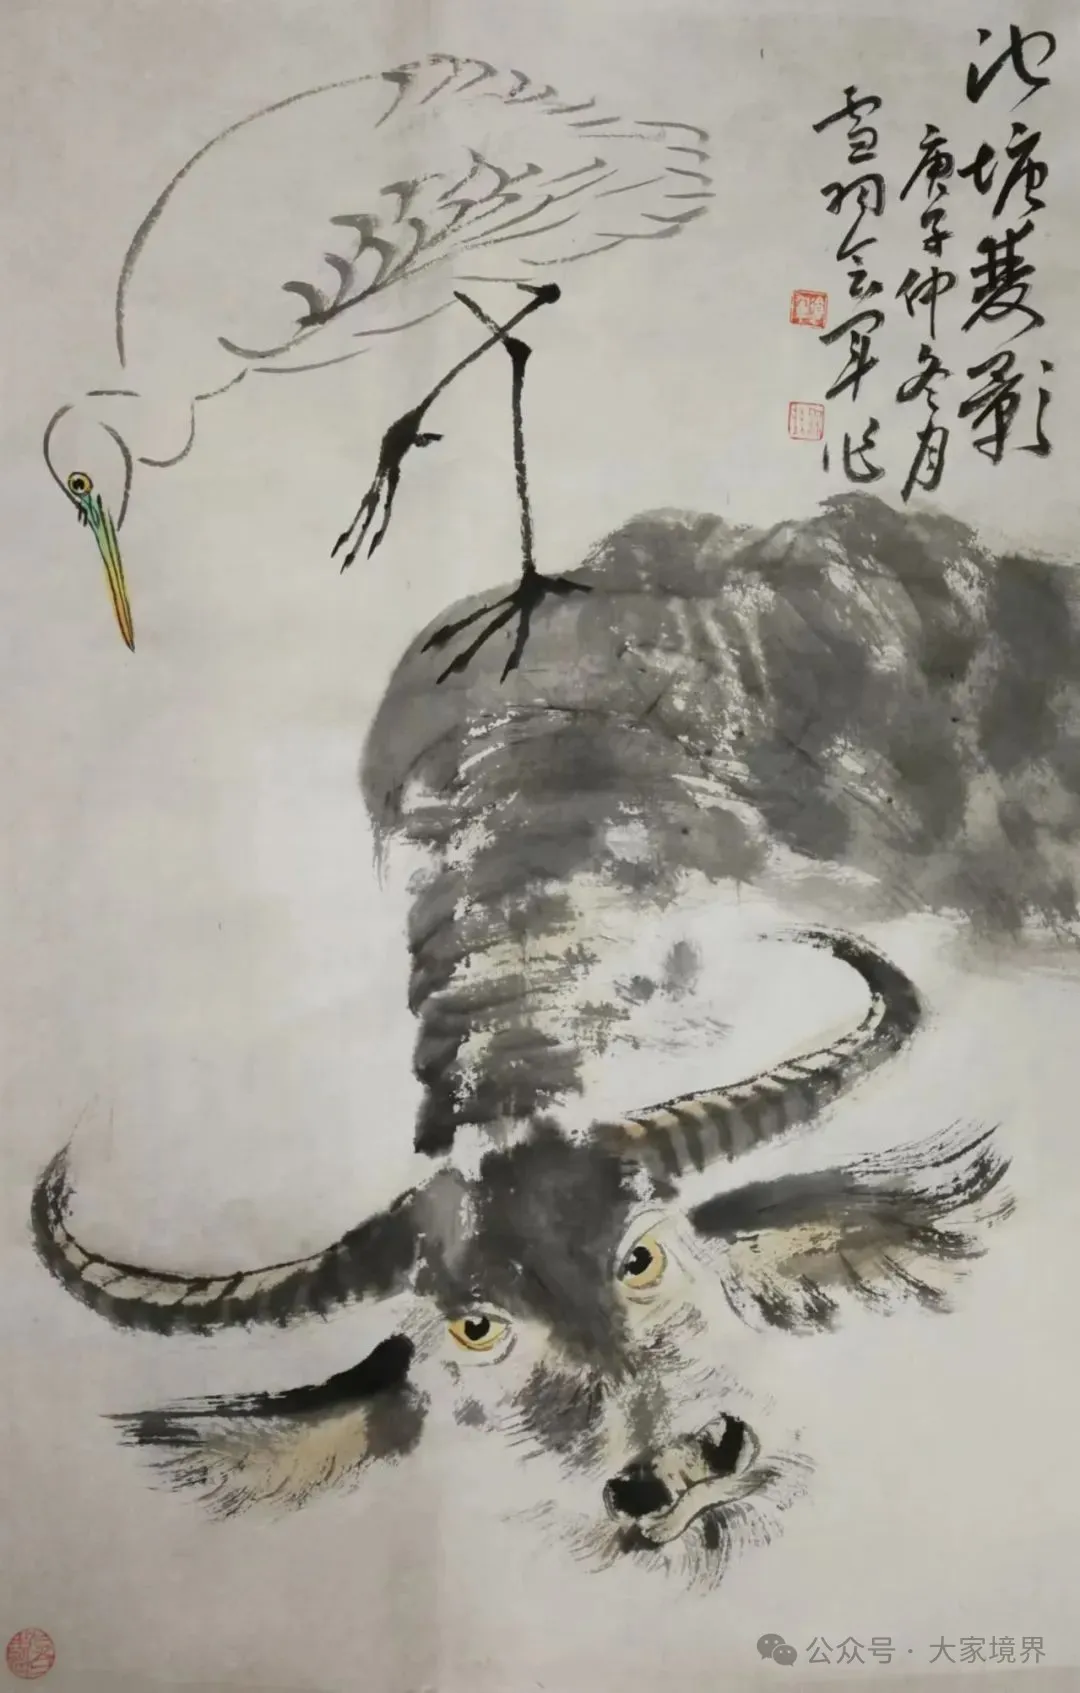 池塘雙影
庚子仲冬月
雪羽会军作
公众号 · 大家境界